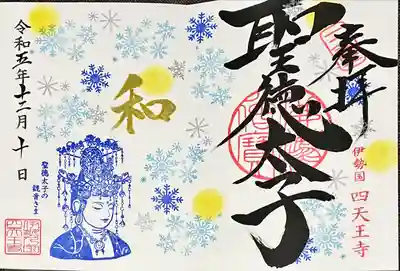 奉拝
聖徳太子
伊勢国 四天王寺
和
聖徳太子の
観音さま
令和五年十二月十日